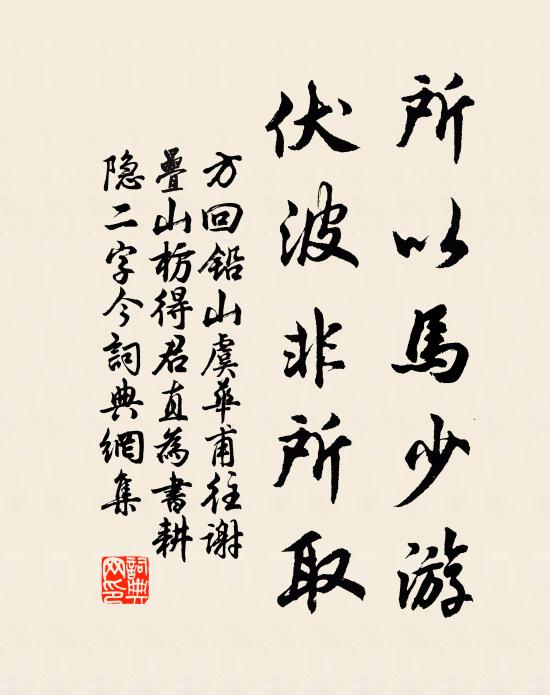 所以馬少游
伏波非所取
方回鉛山虞華甫往謝
疊山枋得君直為書耕
隐二字今詞典網集
詞典
网印